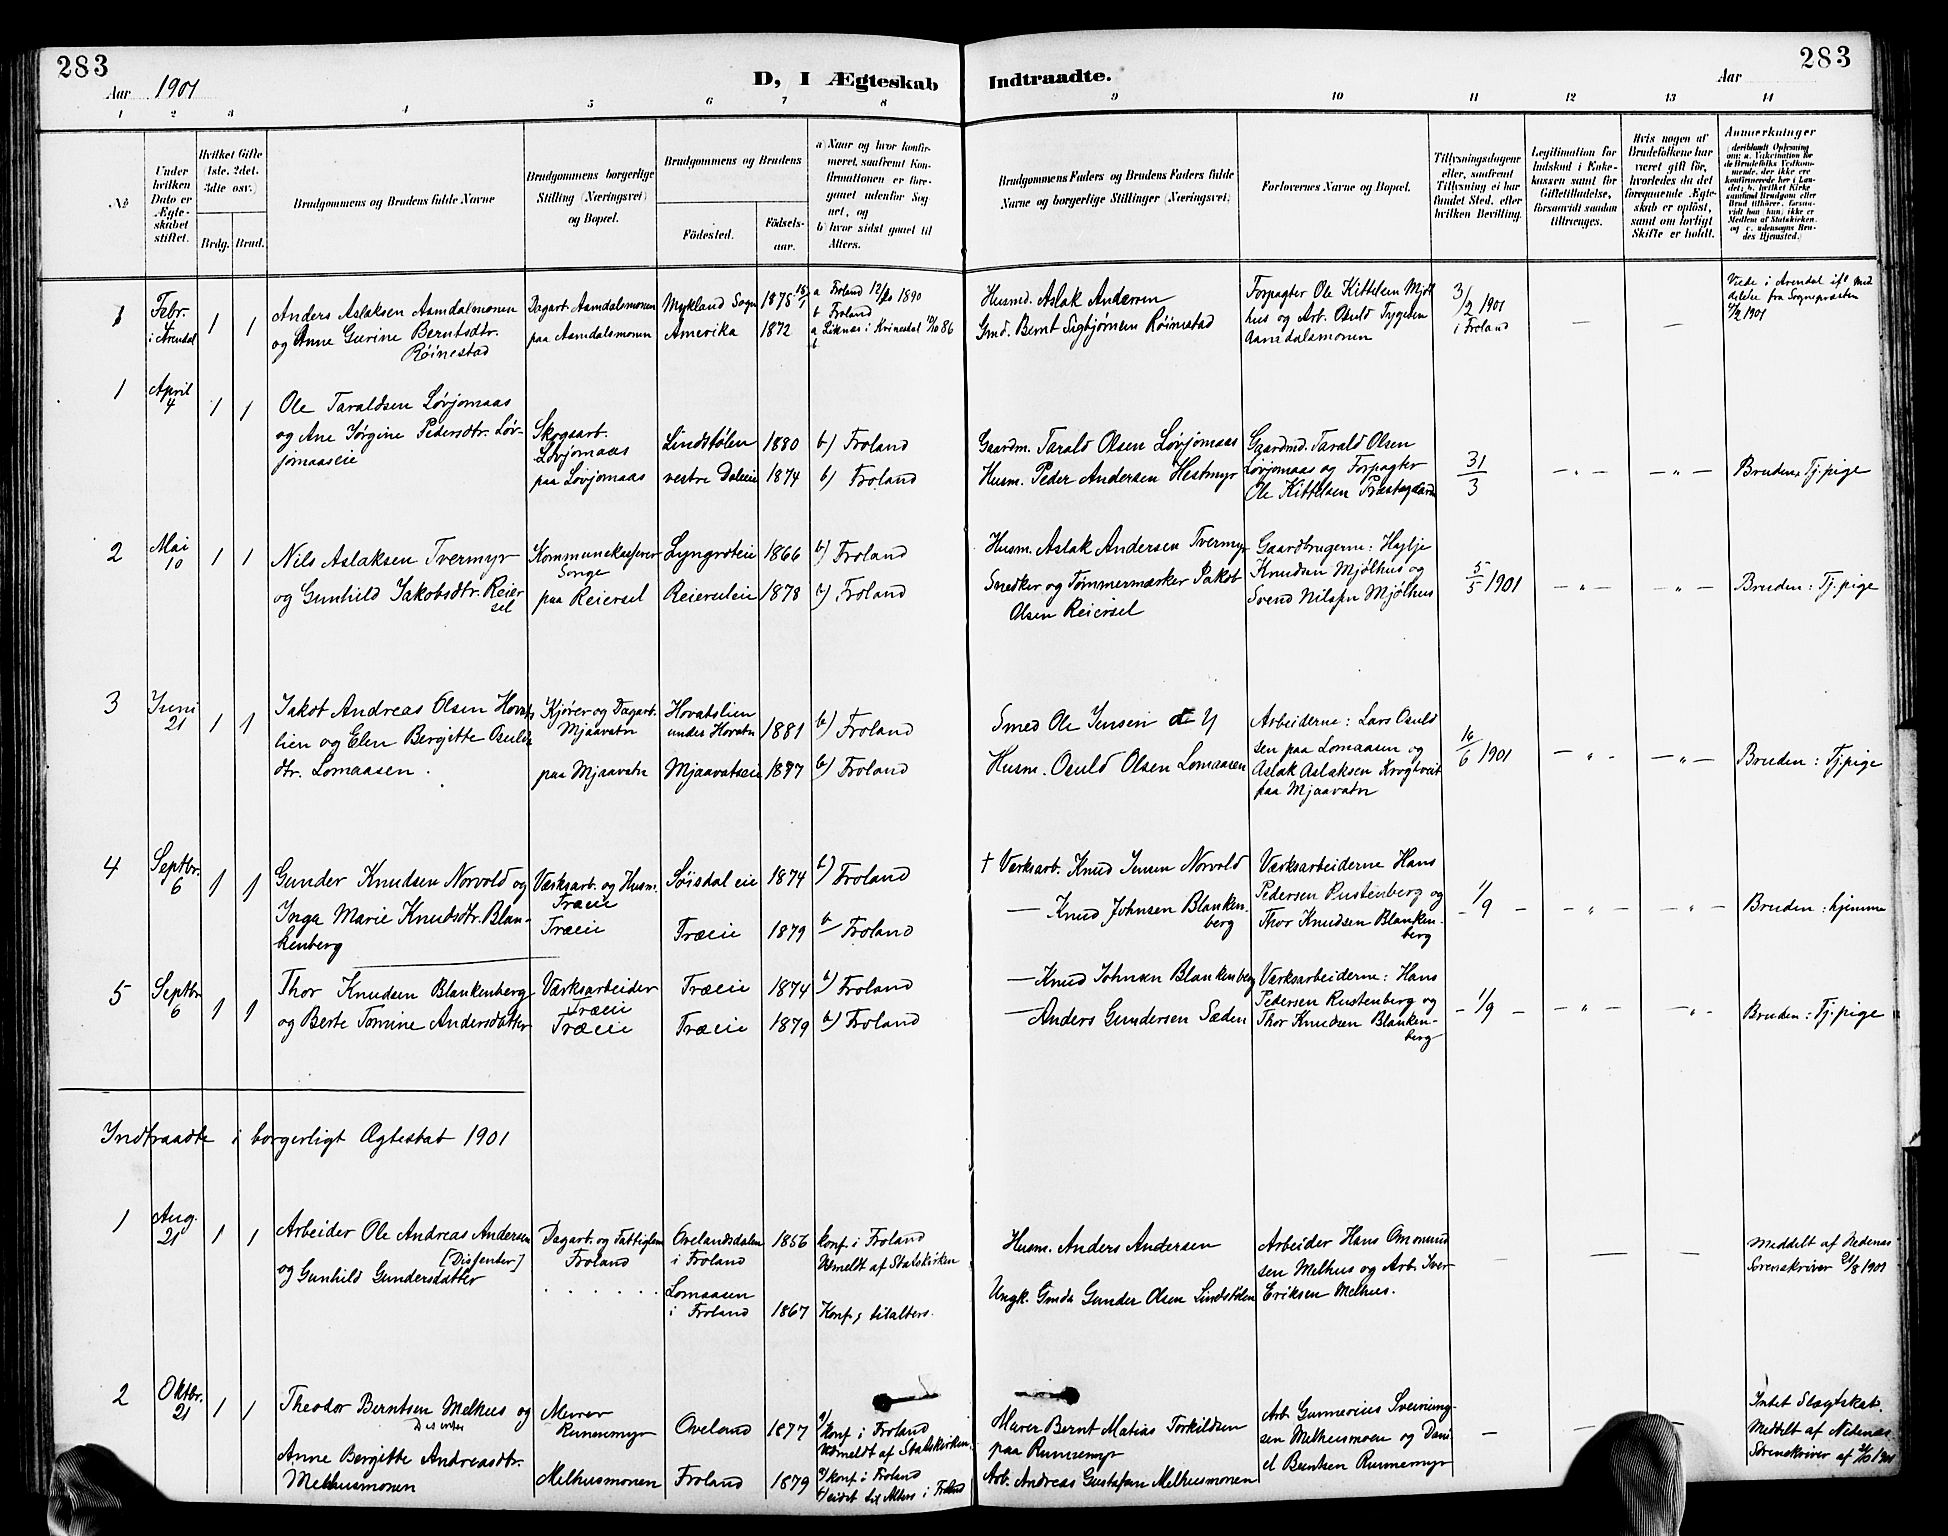 283
283
Aar 1901
D, I Ægteskab Indtraadte.
Aar
1 2 3 4 5 6 7 8 9 10 11 12 13 14
No
Under hvilken Dato er Ægteskabet stiftet.
Hvilket Gifte (1ste. 2det. 3die osv.)
Brdg. Brud.
Brudgommens og Brudens fulde Navne
Brudgommens borgerlige Stilling (Næringsvei) og Bopæl.
Brudgommens og Brudens
Fødested. Fødsels-aar.
a) Naar og hvor konfirmeret, saafremt Konfirmationen er foregaaet udenfor Sognet, og
b) hvor sidst gaaet til Alters.
Brudgommens Faders og Brudens Faders fulde Navne og borgerlige Stillinger (Næringsvei)
Forlovernes Navne og Bopæl.
Tillysningsdagene eller, saafremt Tillysning ei har fundet Sted, efter hvilken Bevilling.
Legitimation for Indskud i Enkekassen samt for Giftetilladelse, forsaavidt saadan tiltrænges.
Hvis nogen af Brudefolkene har været gift før, hvorledes da det foregaaende Ægteskab er opløst, samt om lovligt Skifte er holdt.
Anmerkninger (deriblandt Oplysning om: a. Vakcination for de Brudefolks Vedkommende, der ikke ere konfirmerede her i Landet; b. hvilket Kirkesamfund Brudgom eller Brud tilhører, forsaavidt han (hun) ikke er Medlem af Statskirken, og c. udensogns Brudes Hjemsted.)
1 Febr. i Arendal 1 1
Anders Aslaksen Aamdalmonen
og Anne Gurine Berntsdtr.
Röinestad
Dagarb. Aamdalsmonen
paa Aamdalsmonen
Mykland Sogn 1875
Amerika 1872
a Froland 1890
b Froland
a Liknes i Kvinesdal 86
b
Husmd. Aslak Andersen
Gmd. Bernt Sigbjørnsen Röinestad
Forpagter Ole Kittelsen Mjölhus og Arb. Osuld Tygesen
Aamdalsmonen
3/2 1901
i Froland
Viede i Arendal ifl. Meddelelse fra Sognepræsten
4/2 1901
1 April 4 1 1
Ole Taraldsen Løvjomaas
og Ane Jørgine Pedersdtr. Løvjomaaseie
Skogsarb.
Løvjomaas
paa Løvjomaas
Lindstølen 1880
vestre Daleie 1874
b) Froland
b) Froland
Gaardm. Tarald Olsen Løvjomaas
Husm. Peder Andersen Hestmyr
Gaardmd. Tarald Olsen
Løvjomaas og Forpagter
Ole Kittelsen Præstegaard
31/3
Bruden: Tj.pige
2 Mai 10 1 1
Nils Aslaksen Tvermyr
og Gunhild Jakobsdtr. Reiersel
Kommunekasserer
Songe
paa Reiersel
Lyngroteie 1866
Reierseleie 1878
b) Froland
b) Froland
Husm. Aslak Andersen Tvermyr
Snedker og Tømmermærker Jakob
Olsen Reiersel
Gaardbrugerne: Hølje
Knudsen Mjølhus og
Svend Nilsen Mjølhus
5/5 1901
Bruden: Tj.pige
3 Juni 21 1 1
Jakob Andreas Olsen Hovatslien og Elen Bergitte Osulds
dtr. Lomaasen.
Kjører og Dagarb.
Mjaavatn
paa Mjaavatn
Hovatslien
under Hovatn 1881
Mjaavatseie 1877
b) Froland
b) Froland
Smed Ole Jensen
Husm. Osuld Olsen Lomaasen
Arbeiderne: Lars Osuldsen paa Lomaasen og
Aslak Aslaksen Krogtveit
paa Mjaavatn
16/6 1901
Bruden: Tj.pige
4 Septbr. 6 1 1
Gunder Knudsen Norvold og
Inga Marie Knudsdtr. Blankenberg
Værksarb. og Husm.
Træeie
Træeie
Søisdal eie 1874
Træeie 1879
b) Froland
b Froland
† Værksarb. Knud Jensen Norvold
— Knud Johnsen Blankenberg
Værksarbeiderne Hans
Pedersen Rustenberg og
Thor Knudsen Blankenberg
1/9
Bruden: hjemme
5 Septbr 6 1 1
Thor Knudsen Blankenberg
og Berte Tomine Andersdatter
Værksarbeider
Træeie
Træeie
Træeie 1874
Træeie 1879
b) Froland
b) Froland
— Knud Johnsen Blankenberg
— Anders Gundersen Sæden
Værksarbeiderne: Hans
Pedersen Rustenberg og
Thor Knudsen Blankenberg
1/9
Bruden: Tj.pige
Indtraadte i borgerligt Ægteskab 1901
1 Aug. 21 1 1
Arbeider Ole Andreas Andersen
[Dissenter]
og Gunhild Gundersdatter
Dagarb. og Fattiglem
Froland
Ovelandsdalen
i Froland 1856
Lomaasen
i Froland 1867
konf. i Froland
Udmeldt af Statskirken
Konf. & tilalters.
Husm. Anders Andersen
Ungk. Gmds Gunder Olsen Lindstølen
Arbeider Hans Omundsen Melhus og Arb. Iver
Eriksen Melhus.
Meddelt af Nedenæs
Sorenskriver 21/8 1901
2 Oktbr. 21 1 1
Theodor Berntsen Melhus og
Dissenter
Anne Bergitte Andreasdtr.
Melhusmonen
Murer
Runnemyr
Melhusmonen
Oveland 1877
Froland 1879
a/ Konf. i Froland
Udmeldt af Statskirken
a/ konf. i Froland
b/ sidst til Alters i Froland
Murer Bernt Matias Torkildsen
paa Runnemyr
Arb. Andreas Gustafsen Melhusmonen
Arb. Gunnerius Sveinungsen Melhusmoen og Daniel Berntsen Runnemyr
Intet Slægtskab.
Meddelt af Nedenæs
Sorenskriver af 1901